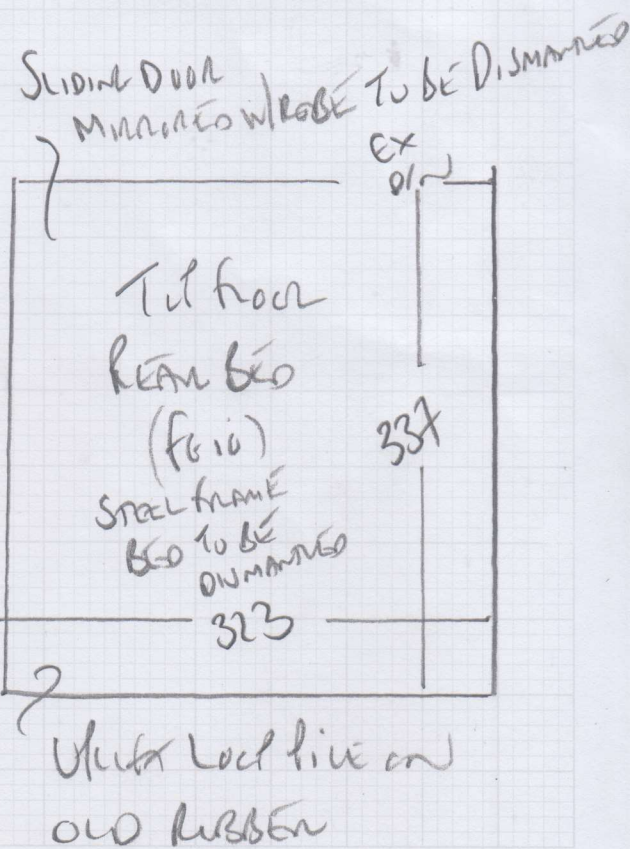 SLIDING DOOR
MIRRORED W/ROBE TO BE DISMANTLED
EX
D/W
1st FLOOR
REAR BED
STEEL FRAME
BED TO BE
DISMANTLED
337
323
LOOP PILE ON
OLD RUBBER